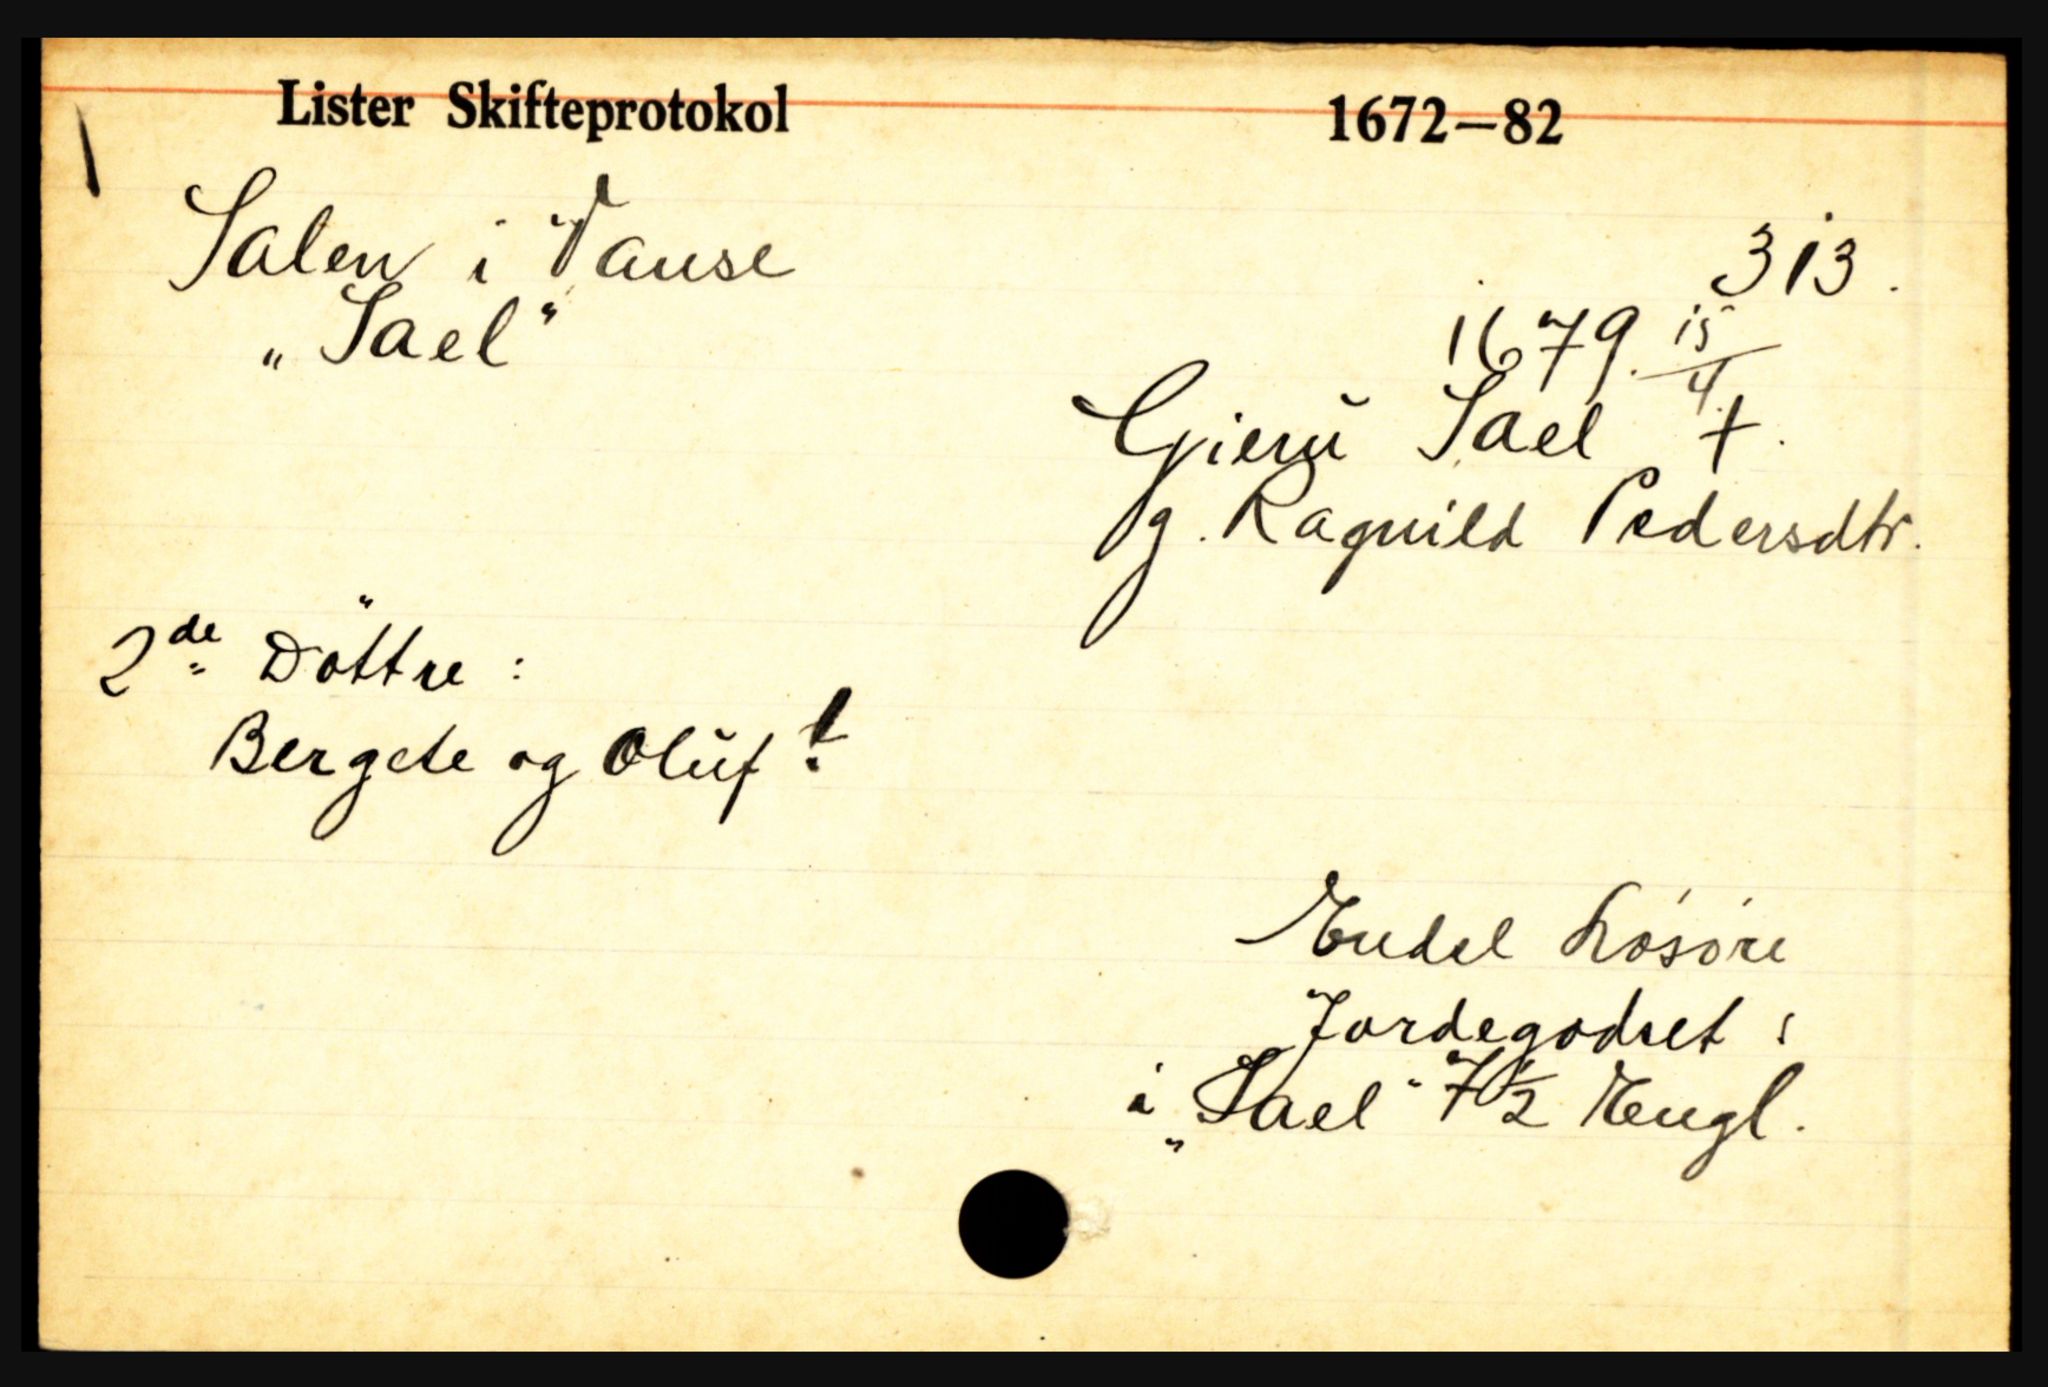 Lister Skifteprotokol 1672—82
Salen i Vanse
313.
„Sael"
1679. 15/4.
Gierü Sael †.
g. Ragnild Pedersdtr.
2de Döttre:
Bergete og Olüf!
Endel Løsøre
Jordegodset:
i „Sael" 7½ Engl.